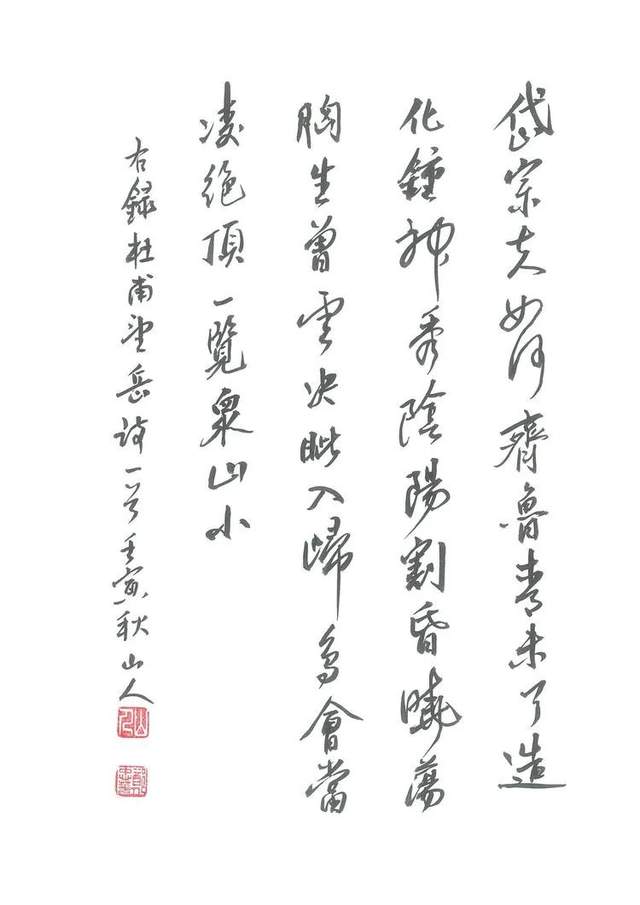 岱宗夫如何齊魯青未了造
化鍾神秀陰陽割昏曉蕩
胸生曾雲决眦入歸鳥會當
凌絕頂一覽衆山小
右録杜甫望岳詩一首壬寅秋山人